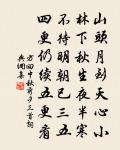 山頭月到天心小
林下秋生夜半寒
不待明朝已三五
四更仍續五更看
方回中秋前夕三首詞
典網